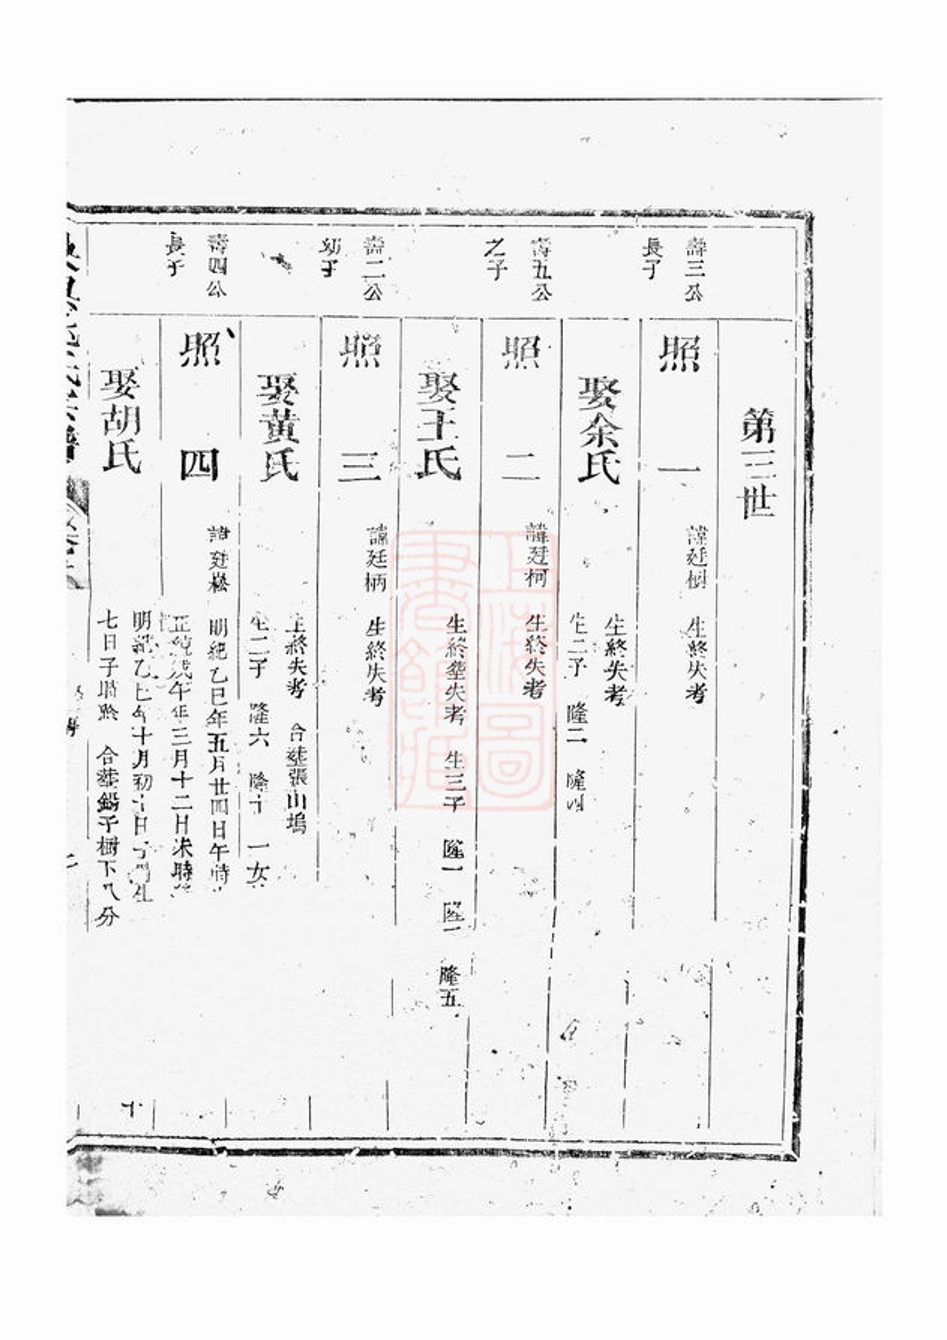 第三世
壽三公
長子
照一
諱廷樹 生終失考
娶余氏
生終失考
生二子 隆二 隆四
壽五公
之子
照二
諱廷柯 生終失考
娶王氏
生終塟失考 生三子 隆一 隆五
壽二公
幼子
照三
諱廷柄 生終失考
娶黃氏
生終失考 合塟張山塢
生二子 隆六 隆十 一女
壽四公
長子
照四
諱廷崧 明紀乙巳年五月廿四日午時
正統戊午年三月十二日未時
娶胡氏
明紀乙七年十月初十日
七日子時於 合塟錫子樹下八分